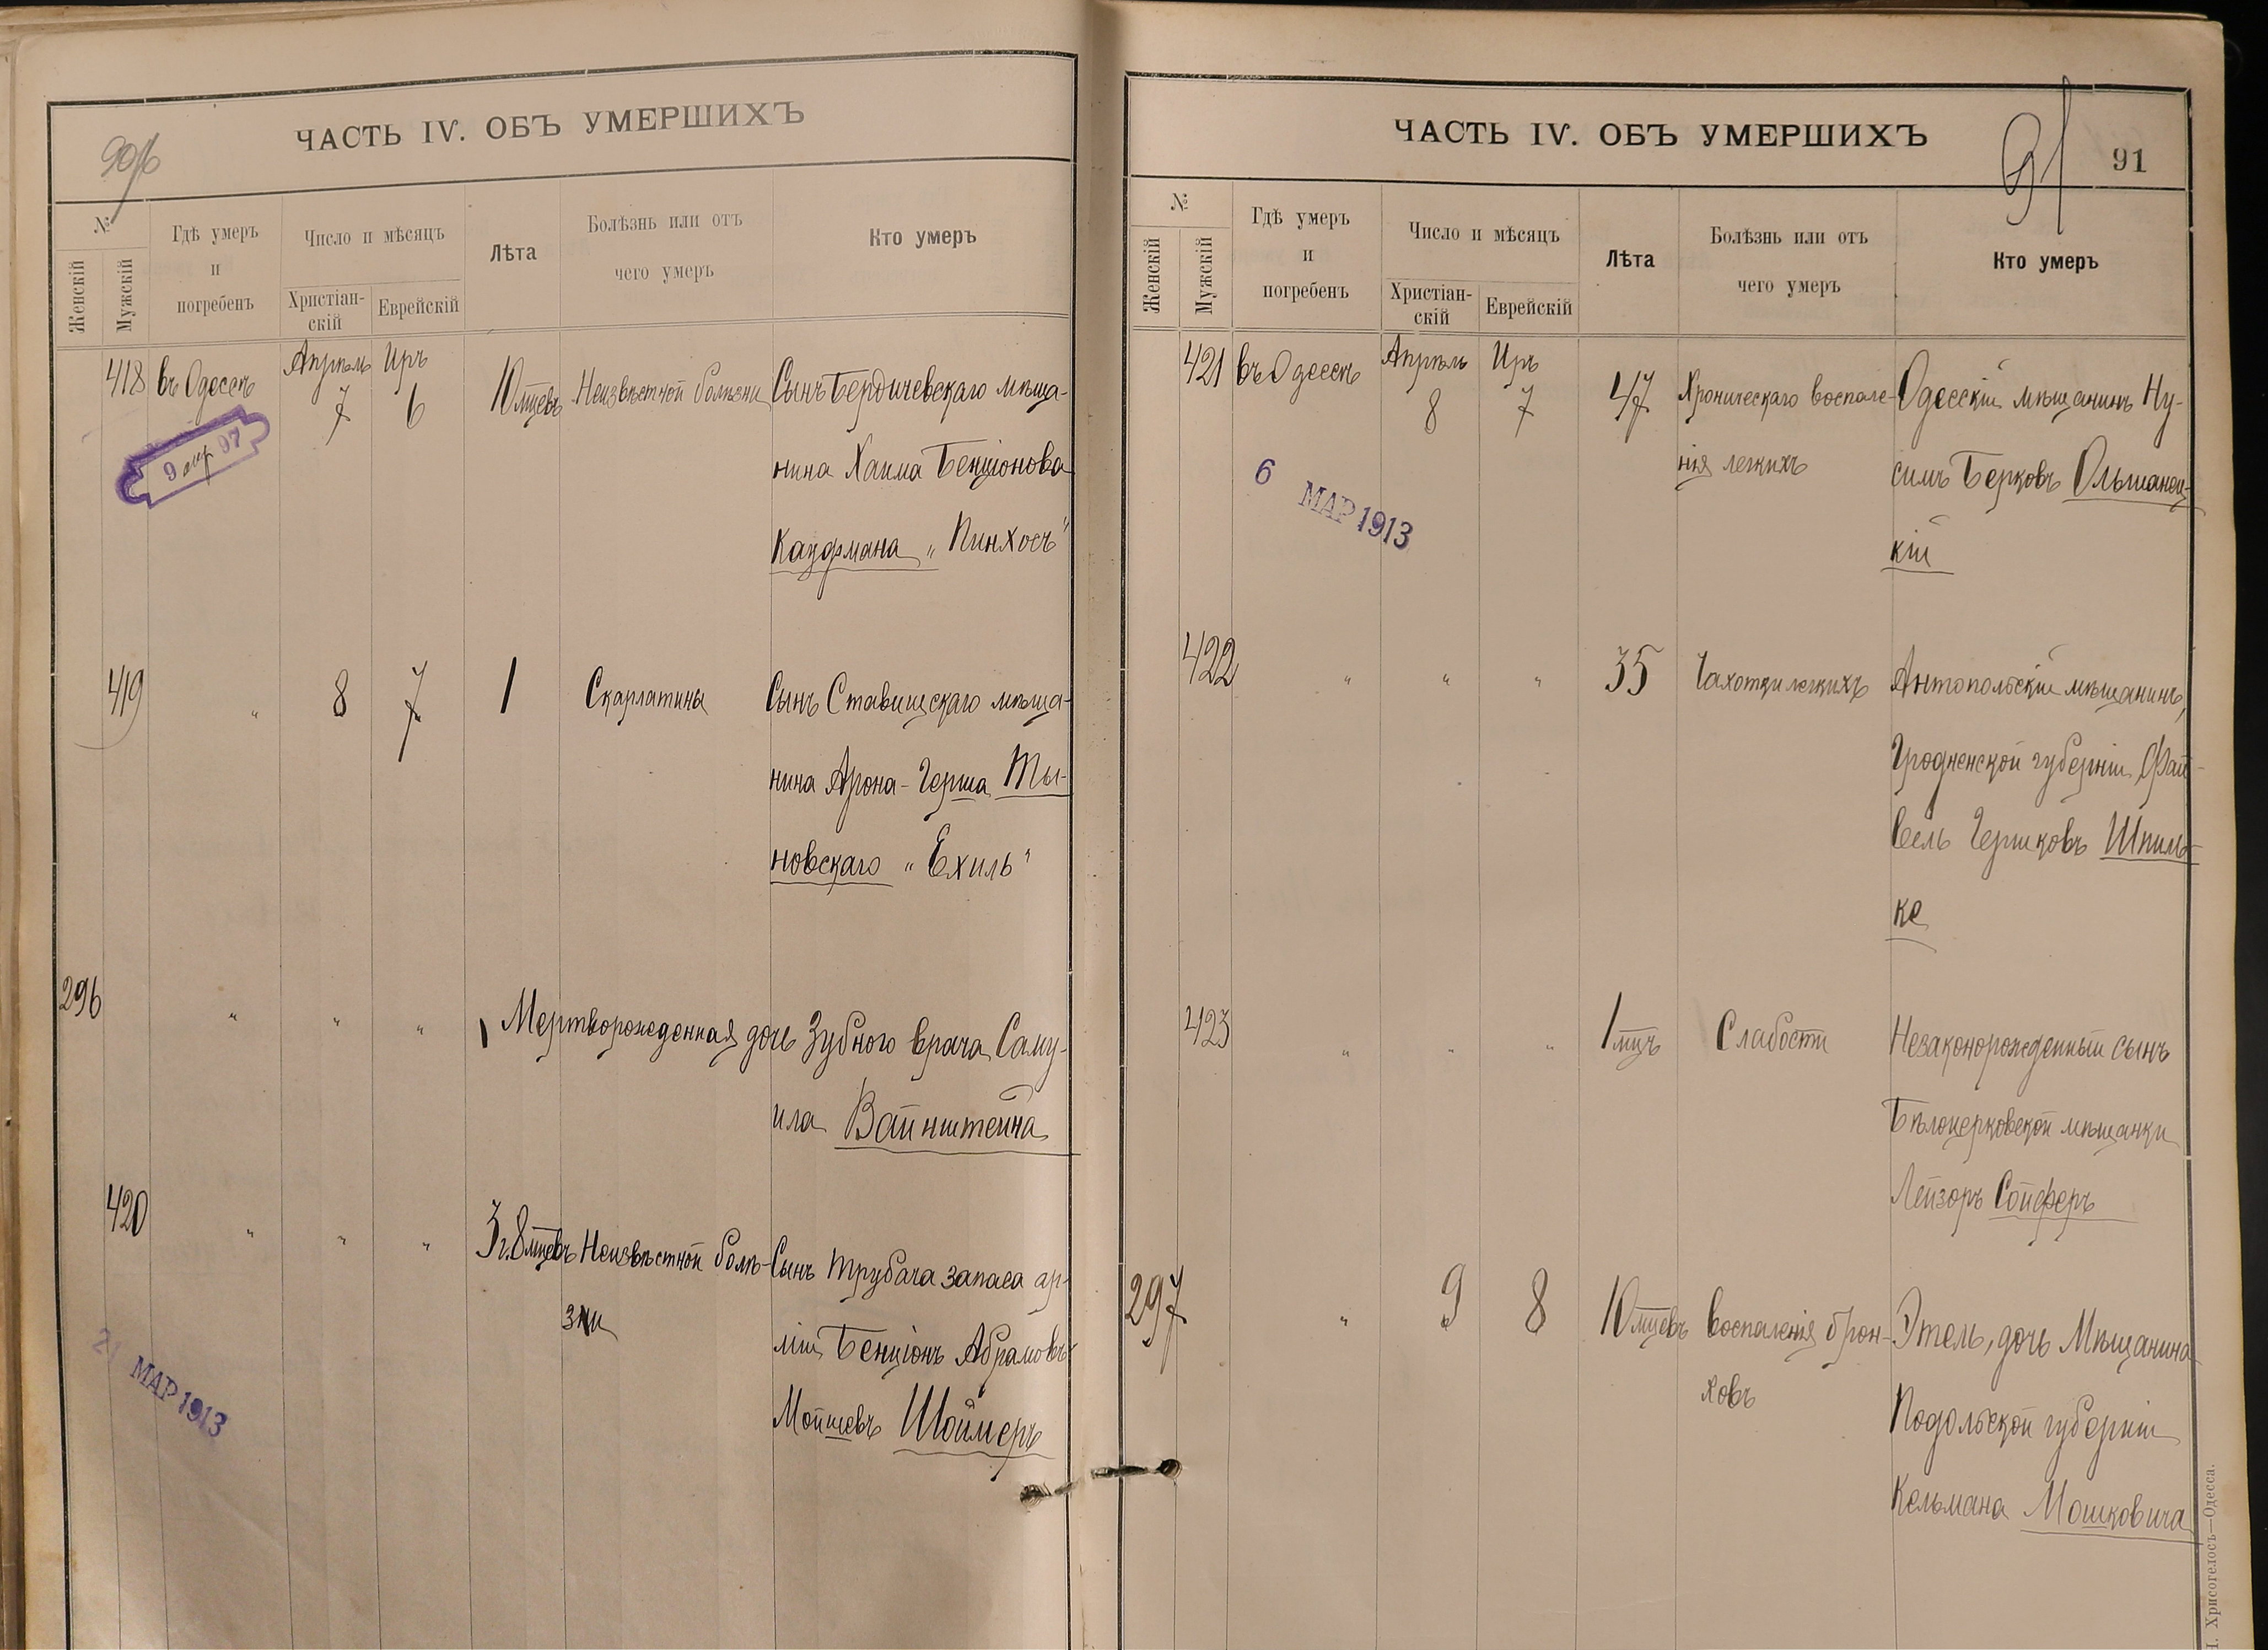 90 об
ЧАСТЬ IV. ОБЪ УМЕРШИХЪ
№
Женскій
Мужскій
Гдѣ умеръ
и
погребенъ
Число и мѣсяцъ
Христіан-
скій
Еврейскій
Лѣта
Болѣзнь или отъ
чего умеръ
Кто умеръ
418 въ Одессѣ Апрѣль 7 Иръ 6 10 мцевъ Неизвѣстной болѣзни Сынъ Бердичевскаго мѣща-
нина Хаима Бенціонова
Кауфмана „Пинхосъ“
9 апр 97
419 „ 8 7 1 Скарлатины Сынъ Ставищскаго мѣща-
нина Арона-Герша Ты-
новскаго „Ехиль“
296 „ „ „ 1 Мертворожденная дочь Зубного врача Саму-
ила Вайнштейна
420 „ „ „ 3 г. 8 мцевъ Неизвѣстной болѣ- Сынъ трубача запаса ар-
зни
міи Бенціонъ Абрамовъ-
Мойшевъ Шоймеръ
21 МАР 1913
ЧАСТЬ IV. ОБЪ УМЕРШИХЪ
91
91
№
Женскій
Мужскій
Гдѣ умеръ
и
погребенъ
Число и мѣсяцъ
Христіан-
скій
Еврейскій
Лѣта
Болѣзнь или отъ
чего умеръ
Кто умеръ
421 въ Одессѣ Апрѣль 8 Иръ 7 47 Хроническаго воспале- Одесскій мѣщанинъ Ну-
нія легкихъ симъ Берковъ Ольшанец-
кій
6 МАР 1913
422 „ „ „ 35 Чахотки легкихъ Антопольскій мѣщанинъ,
Гродненской губерніи Фай-
вель Гершковъ Шпиль-
ке
423 „ „ „ 1 мцъ Слабости Незаконорожденный сынъ
Бѣлоцерковской мѣщанки
Лейзоръ Сойферъ
297 „ 9 8 10 мцевъ воспаленія брон- Этель, дочь Мѣщанина
ховъ Подольской губерніи
Кельмана Мошковича
Хрисогелосъ—Одесса.